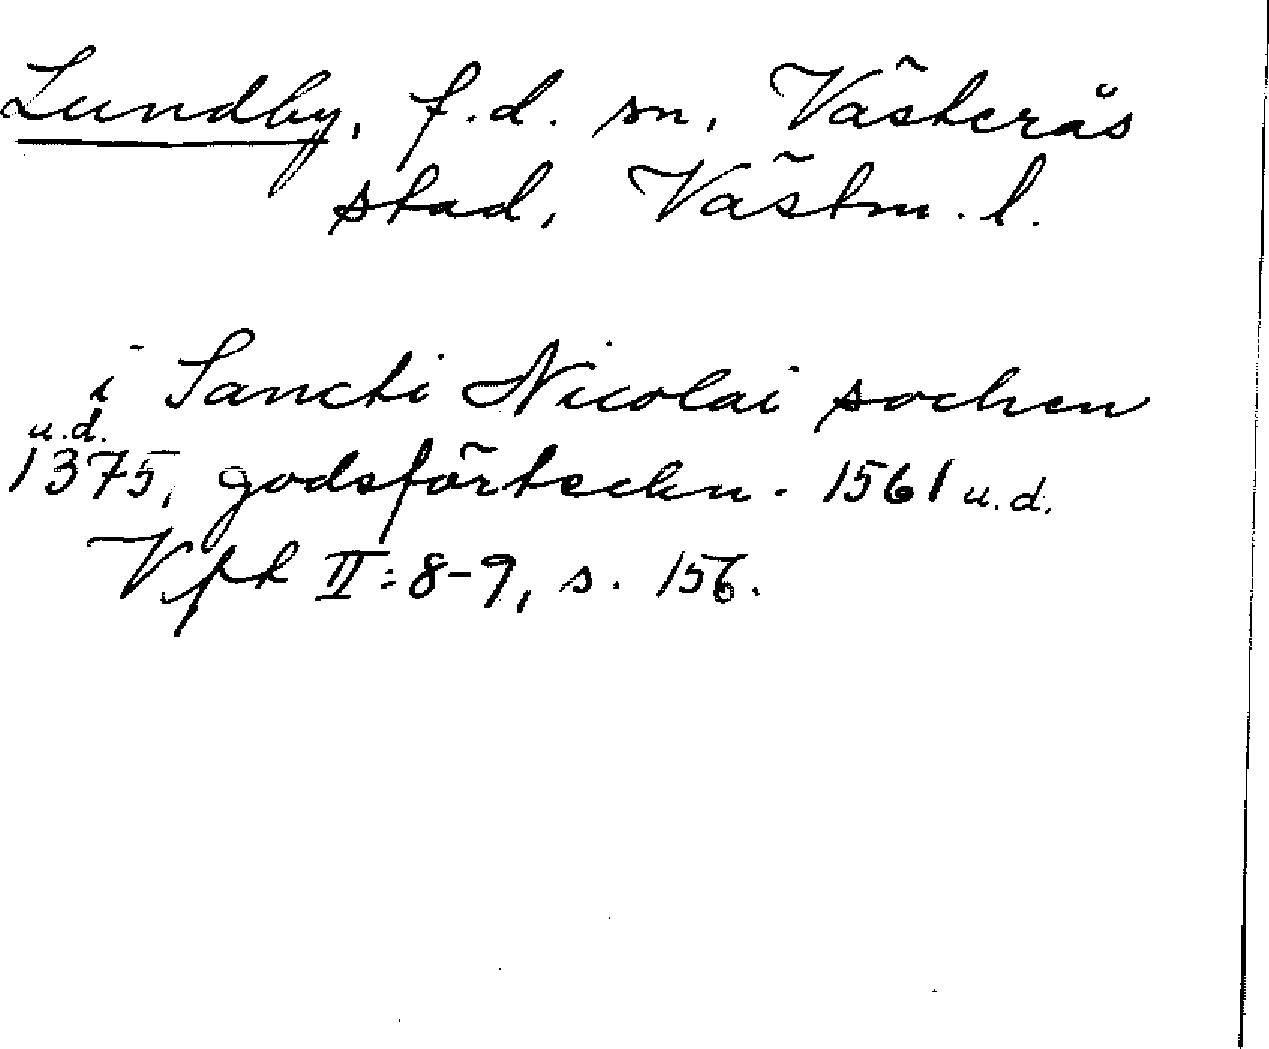 Lundby, f.d. sn, Västerås
stad, Västm. l.
i Sancti Nicolai sochen
u.d.
1375, godsförteckn. 1561 u.d.
Vfk II:8-9, s. 156.